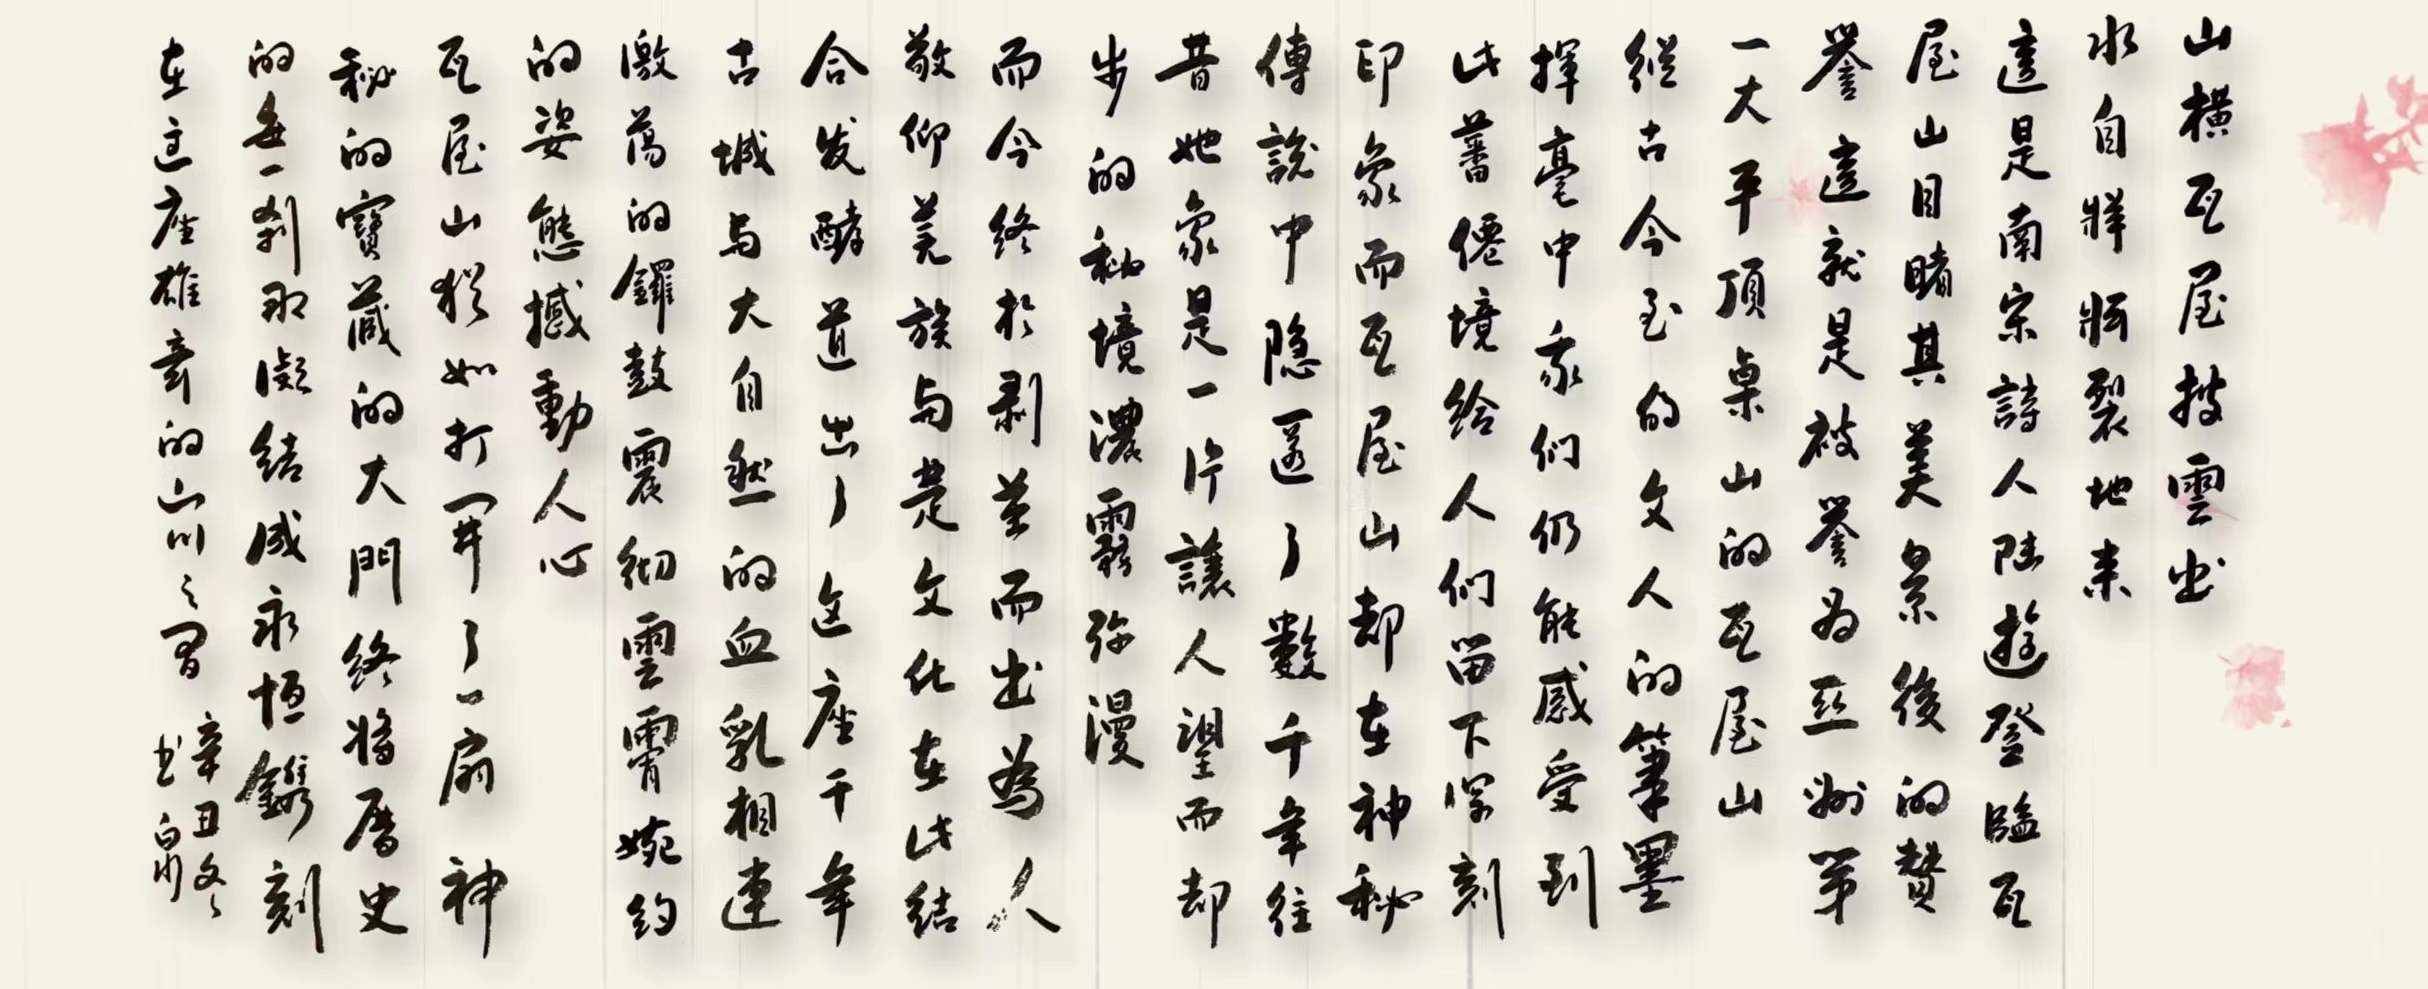 山橫瓦屋披雲出
水自牂牁裂地来
這是南宋詩人陆遊登臨瓦
屋山目睹其美景後的贊
譽這就是被譽為亚洲第
一大平頂桌山的瓦屋山
縱古今至的文人的筆墨
揮毫中我们仍能感受到
此蕃僊境给人们留下深刻
印象而瓦屋山却在神秘
傳說中隐匿了數千年往
昔她象是一片讓人望而却
步的秘境濃霧弥漫
而今终於剥茧而出為人
敬仰羌族与是文化在此结
合发酵道出了这座千年
古城与大自然的血乳相连
激荡的鑼鼓震彻雲霄婉约
的姿態撼動人心
瓦屋山犹如打開了一扇神
秘的寶藏的大門终将历史
的每一刹那凝结成永恒鐫刻
在这座雄奇的山川之間
辛丑冬
书白泉